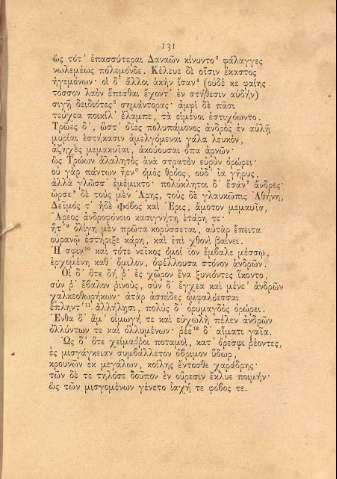 131
ὣς τότ' ἐπασσύτεραι Δαναῶν κίνυντο φάλαγγες
νωλεμέως πόλεμόνδε. Κέλευε δὲ οἷσιν ἕκαστος
ἡγεμόνων· οἱ δ' ἄλλοι ἀκὴν ἴσαν (οὐδέ κε φαίης
τόσσον λαὸν ἕπεσθαι ἔχοντ' ἐν στήθεσιν αὐδήν)
σιγῇ δειδιότες σημάντορας· ἀμφὶ δὲ πᾶσι
τεύχεα ποικίλ' ἔλαμπε, τὰ εἱμένοι ἐστιχόωντο.
Τρῶες δ', ὥστ' ὄϊες πολυπάμονος ἀνδρὸς ἐν αὐλῇ
μυρίαι ἑστήκασιν ἀμελγόμεναι γάλα λευκόν,
ἀζηχὲς μεμακυῖαι, ἀκούουσαι ὄπα ἀρνῶν·
ὣς Τρώων ἀλαλητὸς ἀνὰ στρατὸν εὐρὺν ὀρώρει·
οὐ γὰρ πάντων ἦεν ὁμὸς θρόος, οὐδ' ἴα γῆρυς,
ἀλλὰ γλῶσσ' ἐμέμικτο· πολύκλητοι δ' ἔσαν ἄνδρες·
ὦρσε δὲ τοὺς μὲν Ἄρης, τοὺς δὲ γλαυκῶπις Ἀθήνη,
Δεῖμός τ' ἠδὲ Φόβος καὶ Ἔρις, ἄμοτον μεμαυῖα,
Ἄρεος ἀνδροφόνοιο κασιγνήτη ἑτάρη τε·
ἥτ' ὀλίγη μὲν πρῶτα κορύσσεται, αὐτὰρ ἔπειτα
οὐρανῷ ἐστήριξε κάρη, καὶ ἐπὶ χθονὶ βαίνει.
Ἥ σφιν καὶ τότε νεῖκος ὁμοίϊον ἔμβαλε μέσσῳ,
ἐρχομένη καθ' ὅμιλον, ὀφέλλουσα στόνον ἀνδρῶν.
Οἱ δ' ὅτε δή ῥ' ἐς χῶρον ἕνα ξυνιόντες ἵκοντο,
σύν ῥ' ἔβαλον ῥινούς, σὺν δ' ἔγχεα καὶ μένε' ἀνδρῶν
χαλκεοθωρήκων· ἀτὰρ ἀσπίδες ὀμφαλόεσσαι
ἔπληντ' ἀλλήλῃσι, πολὺς δ' ὀρυμαγδὸς ὀρώρει.
Ἔνθα δ' ἅμ' οἰμωγή τε καὶ εὐχωλὴ πέλεν ἀνδρῶν
ὀλλύντων τε καὶ ὀλλυμένων· ῥέε δ' αἵματι γαῖα.
Ὡς δ' ὅτε χείμαῤῥοι ποταμοί, κατ' ὄρεσφι ῥέοντες,
ἐς μισγάγκειαν συμβάλλετον ὄβριμον ὕδωρ,
κρουνῶν ἐκ μεγάλων, κοίλης ἔντοσθε χαράδρης·
τῶν δέ τε τηλόσε δοῦπον ἐν οὔρεσιν ἔκλυε ποιμήν·
ὣς τῶν μισγομένων γένετο ἰαχή τε φόβος τε.